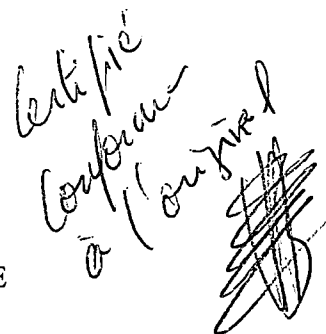 Certifié
Conforme
à l'original
E